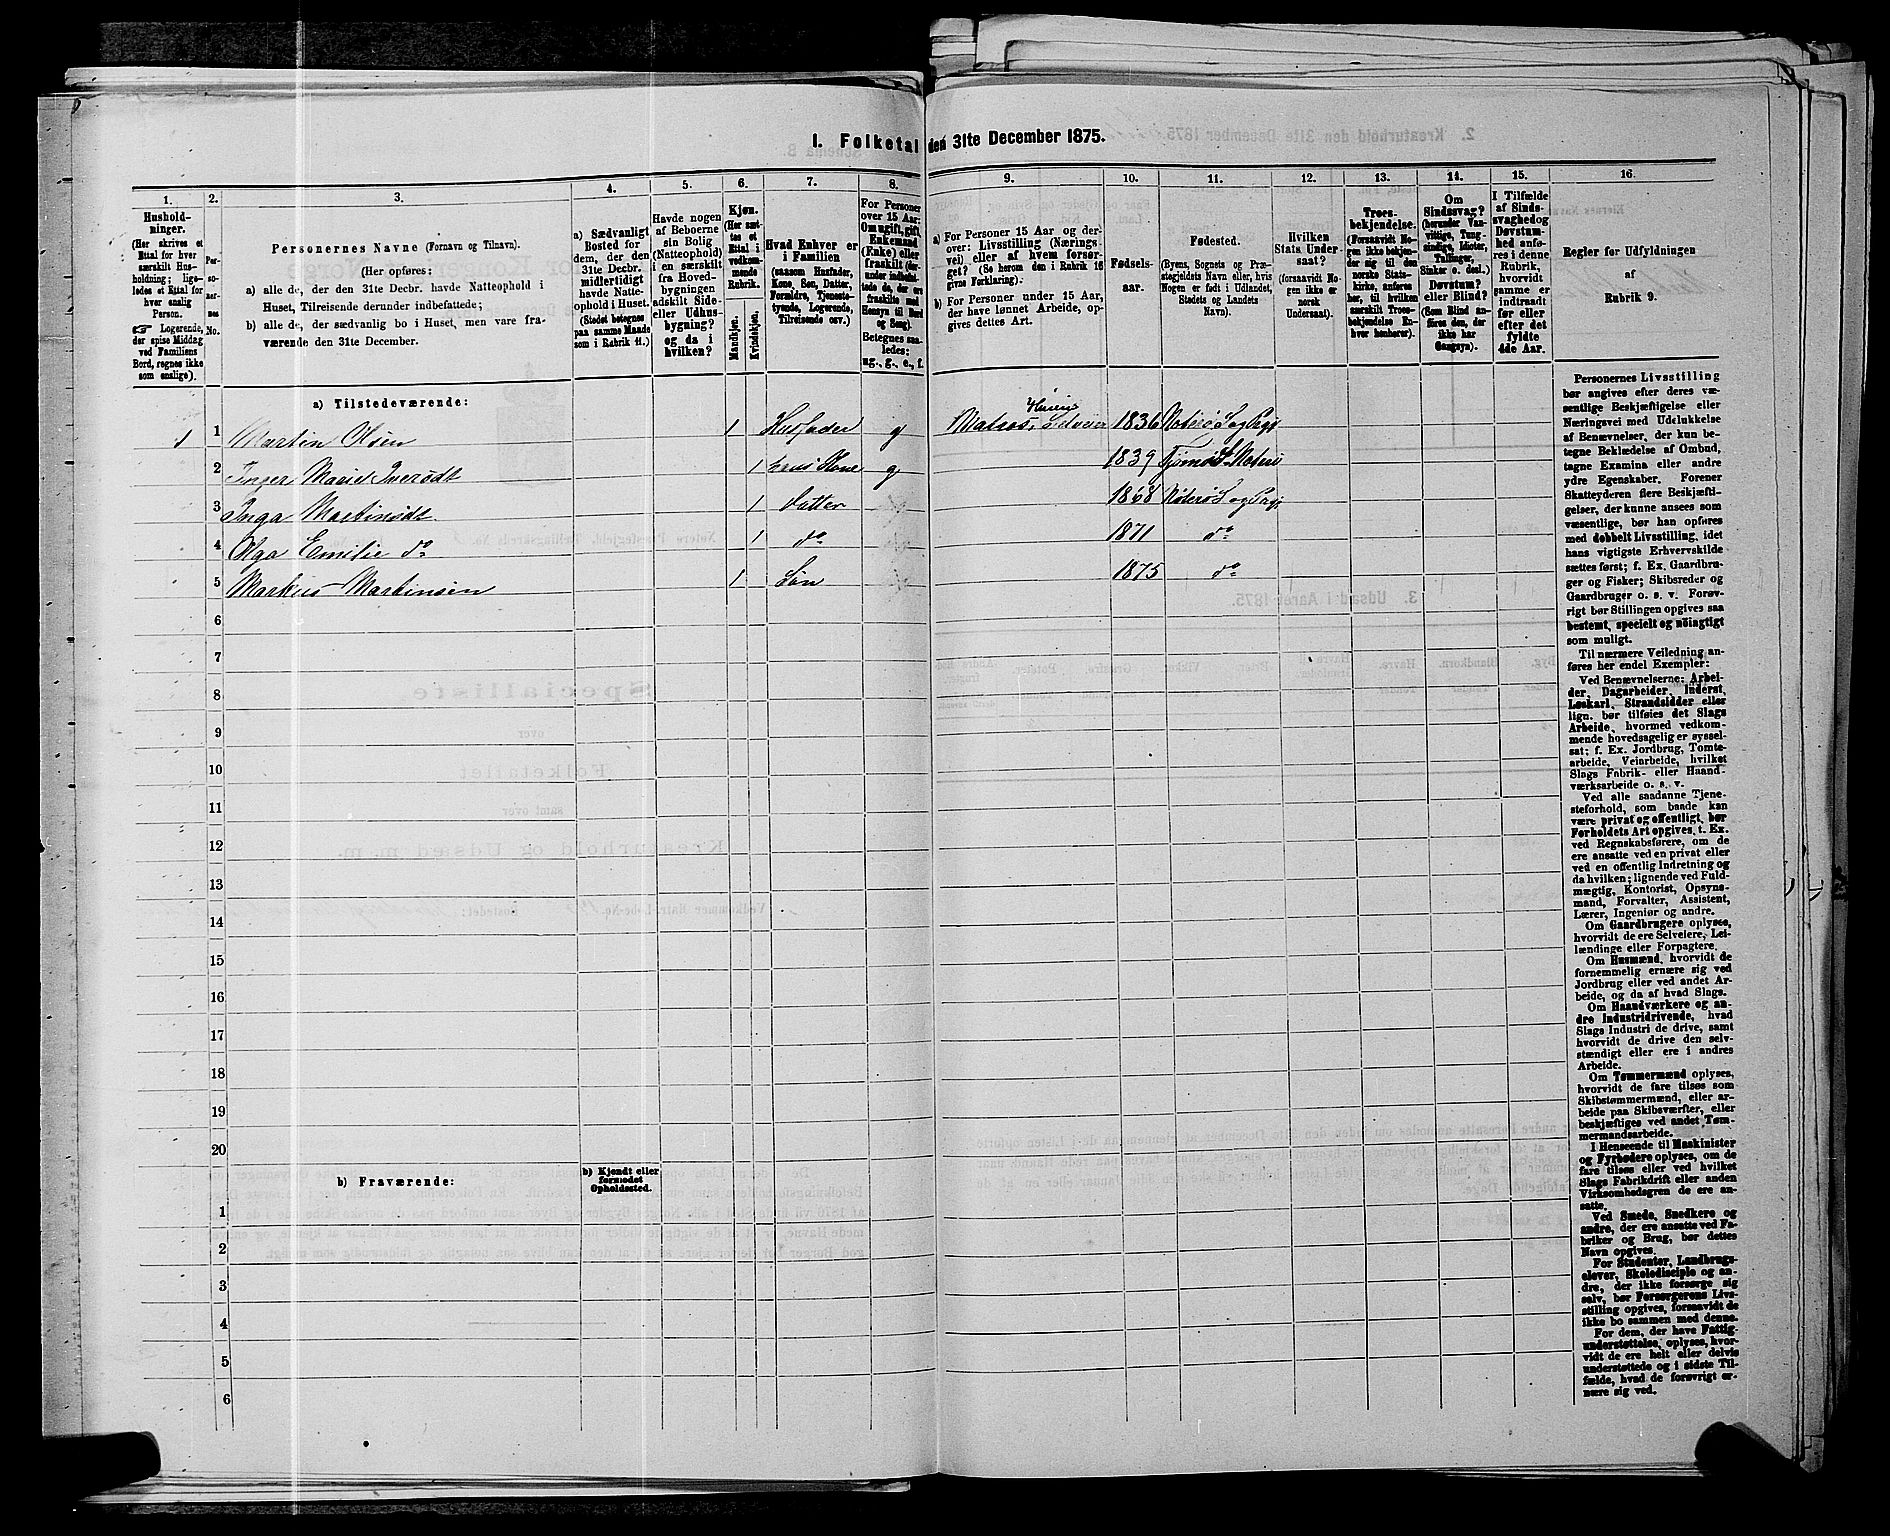 1. Folketal den 31te December 1875.
1.
Hushold-
ninger.
(Her skrives et
Ettal for hver
særskilt Hus-
holdning; lige-
ledes et Ettal for
hver enslig
Person.
Logerende,
der spise Middag
ved Familiens
Bord, regnes ikke
som enslige).
2.
Per-
so-
ner-
nes
No.
3.
Personernes Navne (Fornavn og Tilnavn).
(Her opføres:
a) alle de, der den 31te Decbr. havde Natteophold i
Huset, Tilreisende derunder indbefattede;
b) alle de, der sædvanlig bo i Huset, men vare fra-
værende den 31te December.
4.
a) Sædvanligt
Bosted for
dem, der den
31te Decbr.
midlertidigt
havde Natte-
ophold i Huset.
(Stedet betegnes
paa samme Maade
som i Rubrik 11.)
5.
Havde nogen
af Beboerne
sin Bolig
(Natteophold)
i en særskilt
fra Hoved-
bygningen
adskilt Side-
eller Udhus-
bygning?
og da i
hvilken?
6.
Kjøn.
(Her sæt-
tes et
Ettal i
vedkom-
mende
Rubrik.
Mandkjøn.
Kvindekjøn.
7.
Hvad Enhver er
i Familien
(saasom Husfader,
Kone, Søn, Datter,
Forældre, Tjeneste-
tyende, Logerende,
Tilreisende osv.)
8.
For Personer
over 15 Aar:
Om ugift, gift,
Enkemand
(Enke) eller
fraskilt (der-
under indbefat-
tede de, der ere
fraskilte med
Hensyn til Bord
og Seng).
Betegnes saa-
ledes:
ug., g., e., f.
9.
a) For Personer 15 Aar og der-
over: Livsstilling (Nærings-
vei) eller af hvem forsør-
get? (Se herom den i Rubrik 16
givne Forklaring).
b) For Personer under 15 Aar,
der have lønnet Arbeide, op-
gives dettes Art.
10.
Fødsels-
aar.
11.
Fødested.
(Byens, Sognets og Præ-
stegjeldets Navn eller, hvis
Nogen er født i Udlandet,
Stedets og Landets
Navn).
12.
Hvilken
Stats Under-
saat?
(forsaavidt No-
gen ikke er
norsk
Undersaat).
13.
Troes-
bekjendelse.
(Forsaavidt No-
gen ikke bekjen-
der sig til den
norske Stats-
kirke, anføres
her, til hvilken
særskilt Troes-
bekjendelse En-
hver henhører).
14.
Om
Sindssvag?
(herunder Van-
vittige, Tung-
sindige, Idioter,
Tullinger,
Sinker o. desl.)
Døvstum?
eller Blind?
(Som Blind an-
føres den, der
ikke har
Gangsyn).
15.
I Tilfælde
af Sinds-
svaghed og
Døvstum-
hed anfø-
res i denne
Rubrik,
hvorvidt
samme er
indtraadt
før eller
efter det
fyldte
4de Aar.
16.
Regler for Udfyldningen
af
Rubrik 9.
a) Tilstedeværende:
1 1 Martin Olsen 1 Husfader g 1836 Nøterø S og Pgj
2 Inger Marie Iversdt 1 hans Kone g 1839 Tjømø S. Nøterø
3 Inga Martinsdt. 1 Datter 1868 Nøterø S og Pgj.
4 Olga Emilie do 1 do 1871 do
5 Markus Martinsen 1 Søn 1875 do
6
7
8
9
10
11
12
13
14
15
16
17
18
19
20
b) Fraværende:
b) Kjendt eller
formodet
Opholdssted.
1
2
3
4
5
6
Personernes Livsstilling
bør angives efter deres væ-
sentlige Beskjæftigelse eller
Næringsvei med Udelukkelse
af Benævnelser, der kun be-
tegne Beklædelse af Ombud,
tagne Examina eller andre
ydre Egenskaber. Forener
Skatteyderen flere Beskjæfti-
gelser, der kunne ansees som
væsentlige, bør han opføres
med dobbelt Livsstilling, idet
hans vigtigste Erhvervskilde
sættes først; f. Ex. Gaardbru-
ger og Fisker; Skibsreder og
Gaardbruger o. s. v. Forøv-
rigt bør Stillingen opgives saa
bestemt, specielt og nøiagtigt
som muligt.
Til nærmere Veiledning an-
føres her endel Exempler:
Ved Benævnelserne: Arbei-
der, Dagarbeider, Inderst,
Løskarl, Strandsidder eller
lign. bør tilføies det Slags
Arbeide, hvormed vedkom-
mende hovedsagelig er syssel-
sat; f. Ex. Jordbrug, Tomte-
arbeide, Veiarbeide, hvilket
Slags Fabrik- eller Haand-
værksarbeide o. s. v.
Ved alle saadanne Tjene-
steforhold, som baade kan
være privat og offentligt, bør
Forholdets Art opgives, t. Ex.
ved Regnskabsførere, om de
ere ansatte ved en privat eller
ved en offentlig Indretning og
da hvilken; lignende ved Fuld-
mægtig, Kontorist, Opsyns-
mand, Forvalter, Assistent,
Lærer, Ingeniør og andre.
Om Gaardbrugere oplyses,
hvorvidt de ere Selveiere, Lei-
lændinge eller Forpagtere.
Om Husmænd, hvorvidt de
fornemmelig ernære sig ved
Jordbrug eller ved andet Ar-
beide, og da af hvad Slags.
Om Haandværkere og an-
dre Industridrivende, hvad
Slags Industri de drive, samt
hvorvidt de drive den selv-
stændigt eller ere i andres
Arbeide.
Om Tømmermænd oplyses,
hvorvidt de fare tilsøs som
Skibstømmermænd, eller ar-
beide paa Skibsværfter, eller
beskjæftiges ved andet Tøm-
mermandsarbeide.
I Henseende til Maskinister
og Fyrbødere oplyses, om de
fare tilsøs eller ved hvilket
Slags Fabrikdrift eller anden
Virksomhedsgren de ere an-
satte.
Ved Smede, Snedkere og
andre, der ere ansatte ved Fa-
briker og Brug, bør dettes
Navn opgives.
For Studenter, Landbrugs-
elever, Skoledisciple og an-
dre, der ikke forsørge sig
selv, bør Forsørgerens Livs-
stilling opgives, forsaavidt de
ikke bo sammen med denne.
For dem, der have Fattig-
understøttelse, oplyses, hvor-
vidt de ere helt eller delvis
understøttede og i sidste Til-
fælde, hvad de forøvrigt er-
nære sig ved.